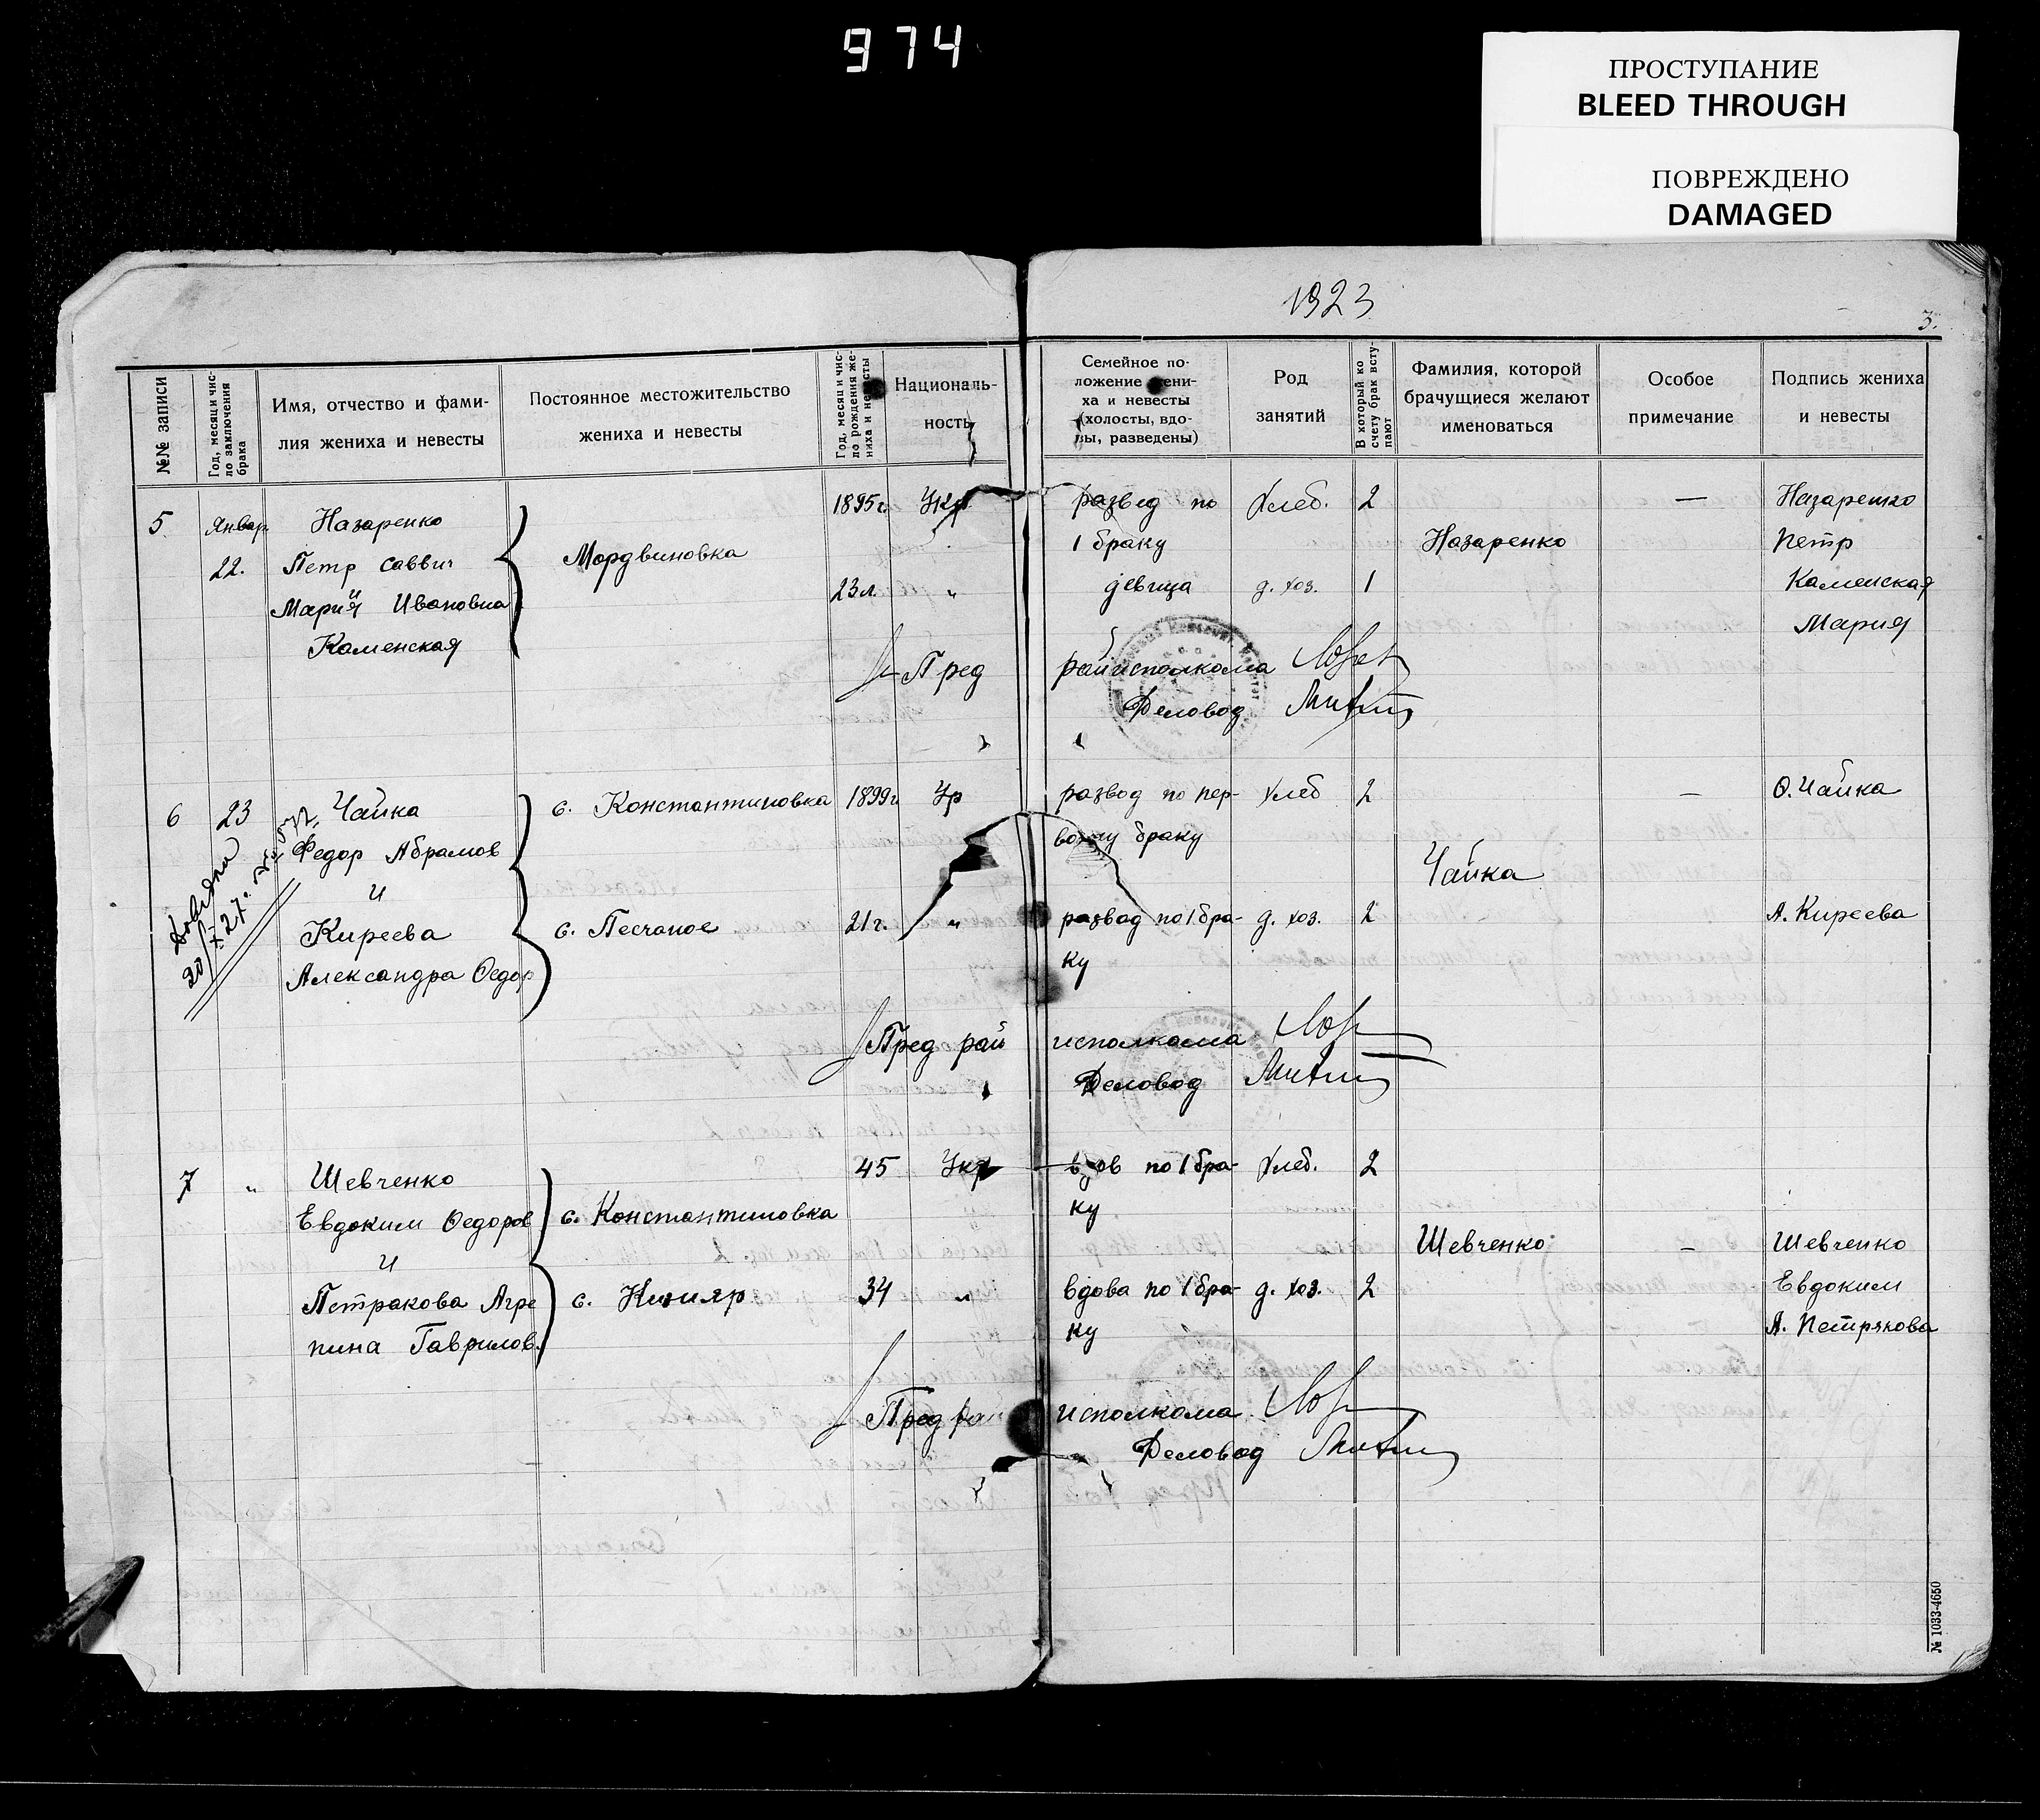 974
ПРОСТУПАНИЕ
BLEED THROUGH
ПОВРЕЖДЕНО
DAMAGED
1923
3.
№№ записи
Год, месяц и чис-
ло заключения
брака
Имя, отчество и фами-
лия жениха и невесты
Постоянное местожительство
жениха и невесты
Год, месяц и чис-
ло рождения же-
ниха и невесты
Националь-
ность
Семейное по-
ложение жени-
ха и невесты
(холосты, вдо-
вы, разведены)
Род
занятий
В который ко
счету брак всту-
пают
Фамилия, которой
брачущиеся желают
именоваться
Особое
примечание
Подпись жениха
и невесты
5 Январ Назаренко 1895г. Укр развед по Хлеб. 2 — Назаренко
22. Петр Саввич Мордвиновка 1 браку Назаренко Петр
и
Мария Ивановна 23л. " девица д. хоз. 1 Каменская
Каменская Мария
Пред райисполкома
Деловод
6 23 Чайка с. Константиновка 1899г Ур развод по пер- Хлеб 2 — Ф. Чайка
Федор Абрамов вому браку
и Чайка
Киреева с. Песчаное 21г. " развод по 1 бра- д. хоз. 2 А. Киреева
Александра Федор ку
20/X 27г.
Пред рай исполкома
Деловод
7 " Шевченко 45 Укр вдов по 1 бра- Хлеб. 2
Евдоким Федоров с. Константиновка ку
и Шевченко — Шевченко
Петракова Агре с. Кизияр 34 " вдова по 1 бра- д. хоз. 2 Евдоким
пина Гаврилов. ку А. Петрякова
Пред рай исполкома
Деловод
№ 1033-4650